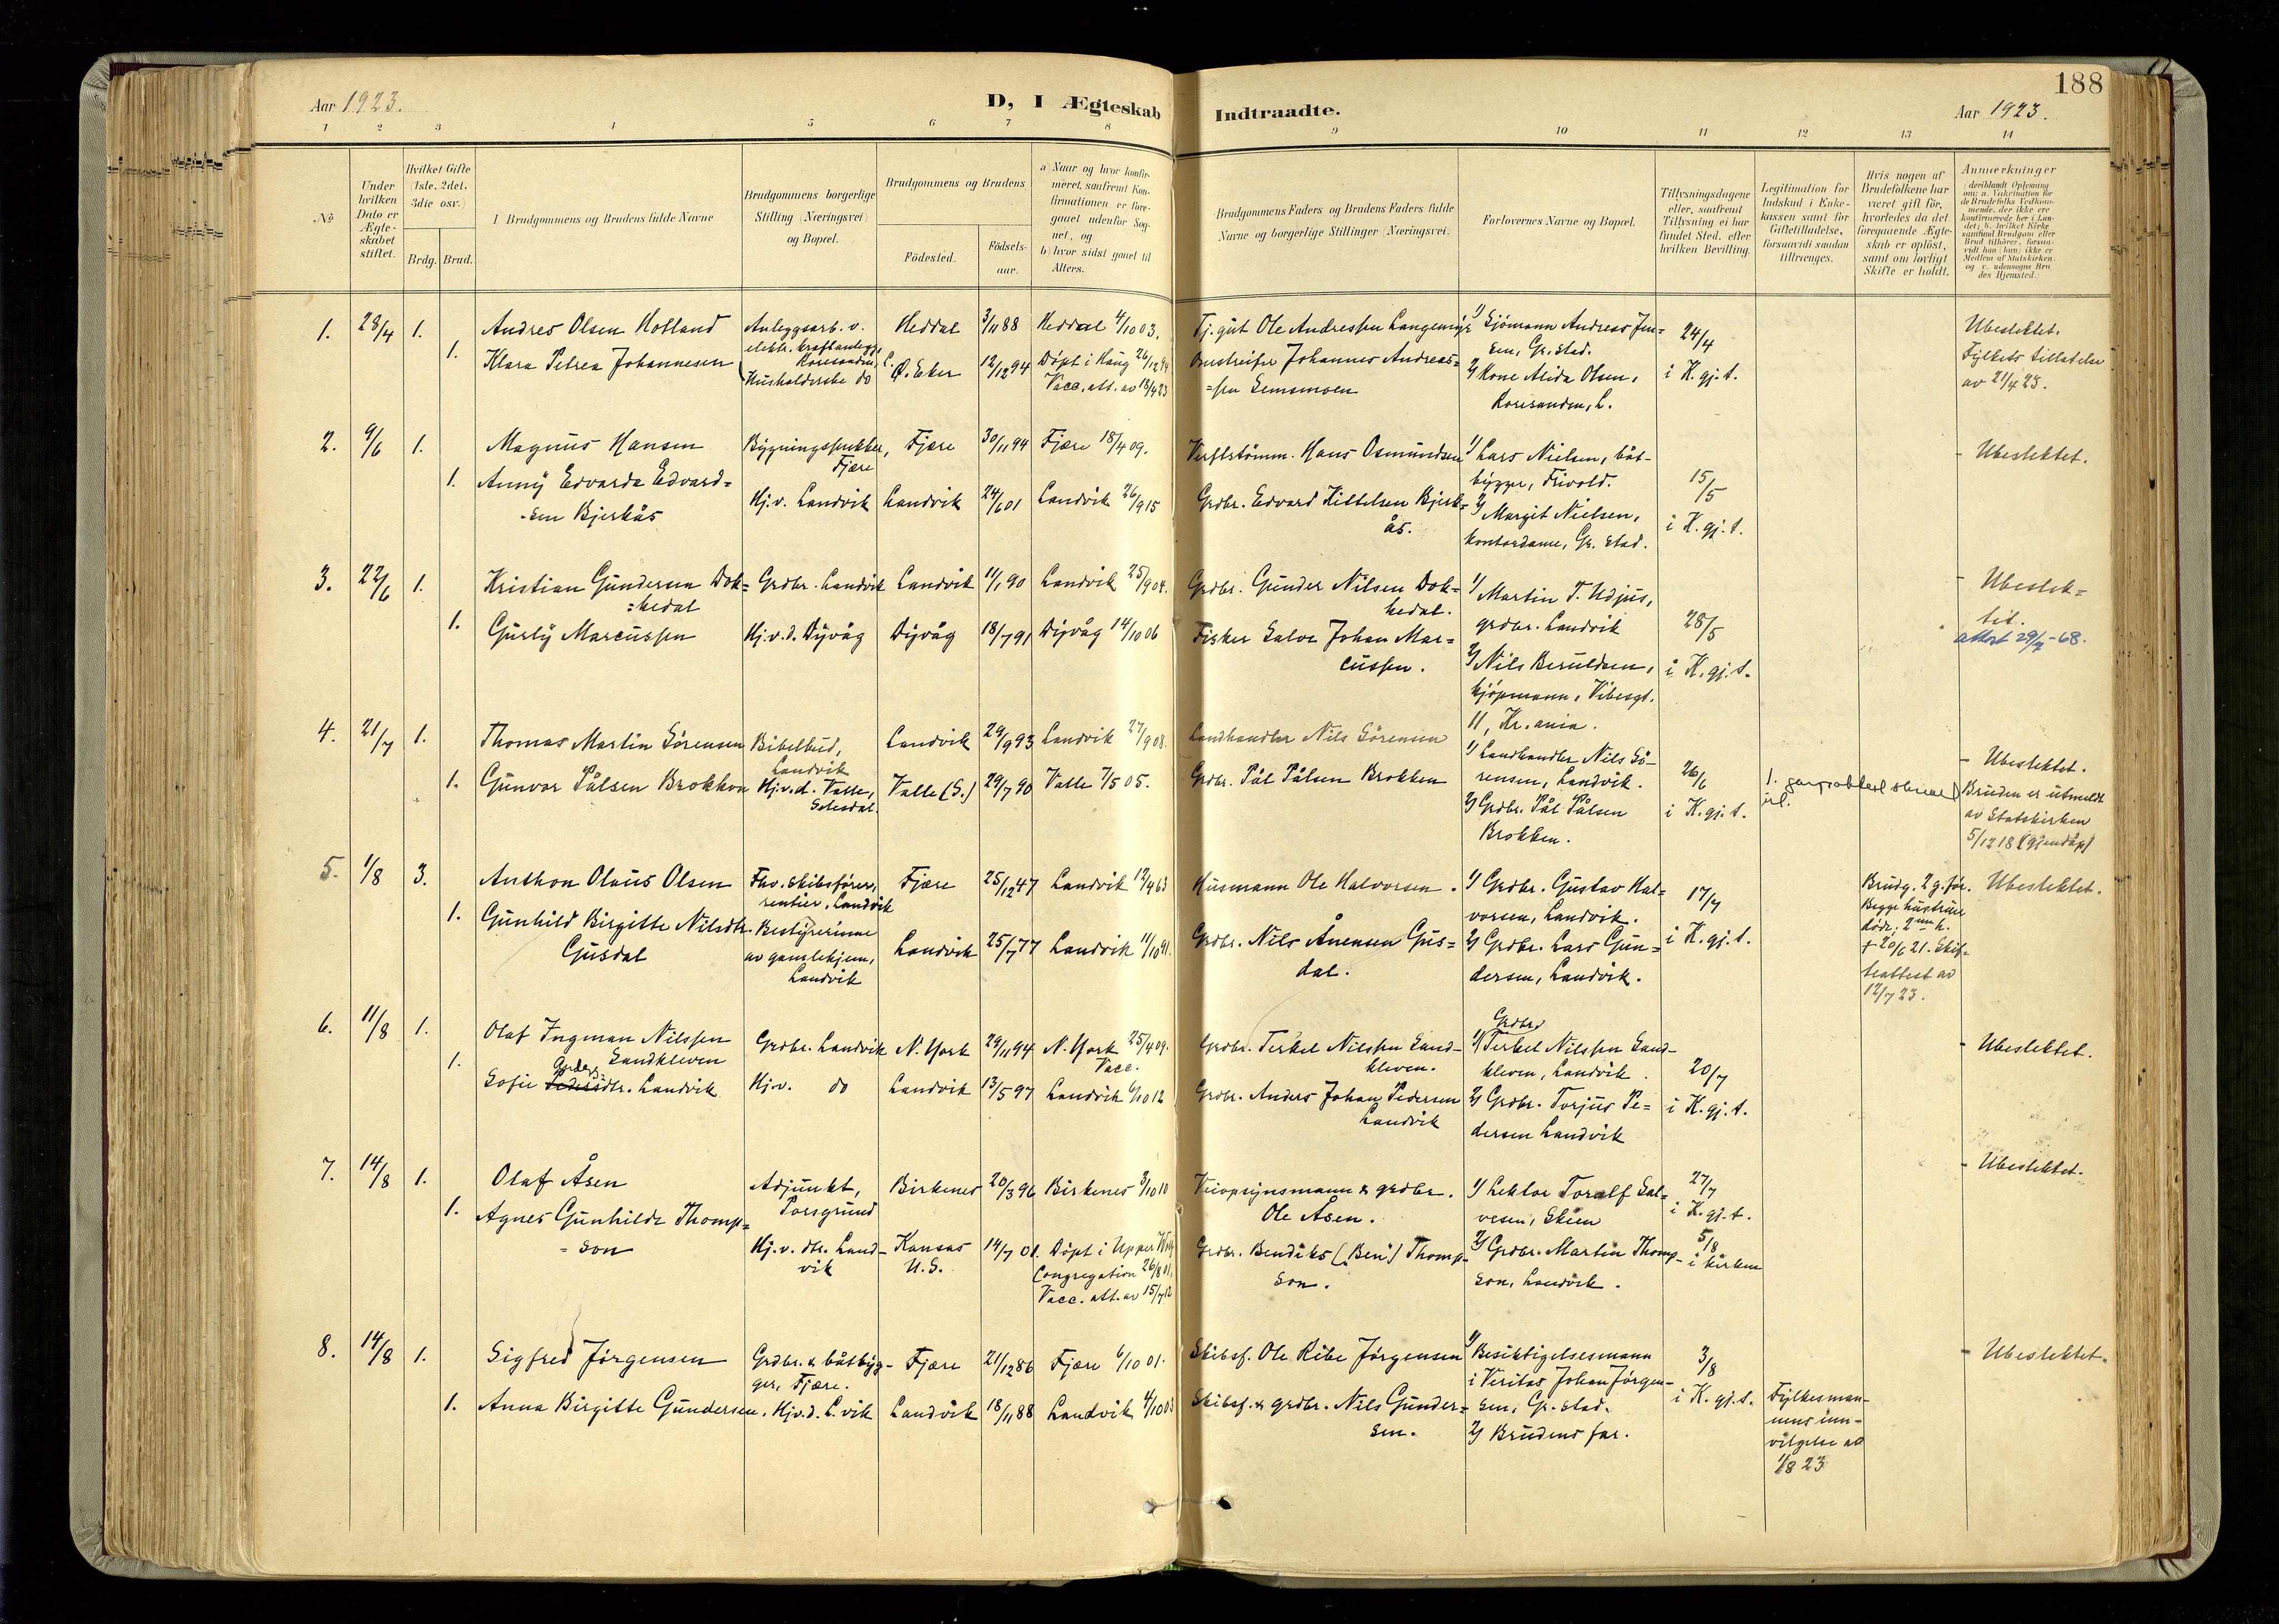 188
Aar 1923.
D, I Ægteskab Indtraadte.
Aar 1923.
1 2 3 4 5 6 7 8 9 10 11 12 13 14
No
Under hvilken Dato er Ægteskabet stiftet.
Hvilket Gifte 1ste, 2det, 3die osv.)
Brdg. Brud.
Brudgommens og Brudens fulde Navne
Brudgommens borgerlige Stilling (Næringsvei) og Bopæl.
Brudgommens og Brudens
Födested.
Födselsaar.
a) Naar og hvor konfirmeret, saafremt Konfirmationen er foregaaet udenfor Sognet, og
b) hvor sidst gaaet til Alters.
Brudgommens Faders og Brudens Faders fulde Navne og borgerlige Stillinger (Næringsvei).
Forlovernes Navne og Bopæl.
Tillysningsdagene eller, saafremt Tillysning ei har fundet Sted, efter hvilken Bevilling.
Legitimation for Indskud i Enkekassen samt for Giftetilladelse, forsaavidt saadan tiltrænges.
Hvis nogen af Brudefolkene har været gift før, hvorledes da det foregaaende Ægteskab er oplöst, samt om lovligt Skifte er holdt.
Anmærkninger
1. 28/4 1. Andres Olsen Holland
Anleggsarb. v. elektr. kraftanlegg,
Heddal 3/11 88 Heddal 4/10 03.
Ole Andressen
1/ Sjömann Andreas Jensen, Gr.stad.
24/4
i K. gj. t.
Ubeslektet.
Fylkets tillatelse
av 21/4 23.
1. Klara Petrea Johannesen
Husholderske do
Ø. Eker 12/12 94 Döpt i Haug 26/12 94
Vacc. att. av 18/4 23
Johannes Andreassen
2/ Kone Alida Olsen,
2. 9/6 1. Magnus Hansen
Bygningssnekker, Fjære
Fjære 30/11 94 Fjære 18/4 09.
Verftstömm. Hans Osmundsen
1/ Lars Nielsen, båtbygger, Frivold.
15/5
i K. gj. t.
- Ubeslektet.
1. Anny Edvarda Edvardsen Bjerkås
Hj.v. Landvik Landvik 24/6 01 Landvik 26/9 15
Grdbr. Edvard Kittelsen Bjerkås.
2/ Margit Nielsen, kontordame, Gr. stad.
3. 22/6 1. Kristian Gundersen Dokkedal
Grdbr. Landvik Landvik 11/1 90 Landvik 25/9 04.
Grdbr. Gunder Nilsen Dokkedal.
1/ Martin T. Udjus, grdbr. Landvik
28/5
i K. gj. t.
- Ubeslektet.
attest 29/7-68.
1. Gurly Marcussen
Hj.v.d. Dyvåg Dyvåg 18/7 91 Dyvåg 14/10 06
Fisker Salve Johan Marcussen.
2/ Nils Beruldsen, kjöpmann, Vibesgt. 11, Kr.ania.
4. 21/7 1. Thomas Martin Sörensen
Bibelbud, Landvik
Landvik 29/9 93 Landvik 27/9 08.
Landhandler Nils Sörensen
1/ Landhandler Nils Sörensen, Landvik.
26/6
i K. gj. t.
- Ubeslektet.
Bruden er utmeldt
av Statskirken
5/12 18 (gjendöpt)
1. Gunvor Pålsen Brokken
Hj.v.d. Valle, Setesdal.
Valle (S.) 29/7 90 Valle 7/5 05.
Grdbr. Pål Pålsen Brokken
2/ Grdbr. Pål Pålsen Brokken.
5. 1/8 3. Anthon Olaus Olsen
Fhv. skibsfører, rentier, Landvik
Fjære 25/12 47 Landvik 12/4 63
Husmann Ole Halvorsen.
1/ Grdbr. Gustav Halvorsen, Landvik.
17/7
i K. gj. t.
Brudg. 2 g. før.
Begge hustruer
döde; 2nen h.
+ 20/6 21. Skifteattest av
12/7 23.
Ubeslektet.
1. Gunhild Birgitte Nilsdtr. Gusdal
Bestyrerinne av gamlehjem, Landvik
Landvik 25/7 77 Landvik 11/10 91.
Grdbr. Nils Ånensen Gusdal.
2/ Grdbr. Lars Gundersen, Landvik.
6. 11/8 1. Olaf Ingman Nilssen Sandkleven
Grdbr. Landvik N. York 29/11 94 N. York 25/4 09.
Vacc.
Grdbr. Terkel Nilssen Sandkleven.
1/ Grdbr. Terkel Nilssen Sandkleven, Landvik.
20/7
i K. gj. t.
- Ubeslektet.
1. Sofie Pedersdtr. Anders Landvik
Hj.v. do Landvik 13/5 97 Landvik 6/10 12
Grdbr. Anders Johan Pedersen Landvik
2/ Grdbr. Torjus Pedersen Landvik
7. 14/8 1. Olaf Åsen
Adjunkt, Porsgrund
Birkenes 20/3 96 Birkenes 3/10 10
Veiopsynsmann & grdbr. Ole Åsen.
1/ Lektor Toralf Salvesen, Skien
27/7
i K. gj. t.
5/8
i kirken
- Ubeslektet.
1. Agnes Gunhilde Thompson
Hj.v. dtr. Landvik
Kansas U.S. 14/7 01. Döpt i Upper
Congregation 26/8 01.
Vacc. att. av 15/7 12
Grdbr. Bendiks (Ben) Thompson.
2/ Grdbr. Martin Thompson, Landvik.
8. 14/8 1. Sigfred Jörgensen
Grdbr. & båtbygger, Fjære.
Fjære 21/12 86 Fjære 6/10 01.
Skibsf. Ole Ribe Jörgensen
1/ Besiktigelsesmann i Veritas Johan Jörgensen, Gr.stad.
3/8
i K. gj. t.
Fylkesmannens innvilgelse av
1/8 23
- Ubeslektet.
1. Anna Birgitte Gundersen.
Hj.v.d. L.vik Landvik 18/11 88 Landvik 4/10 03
Skibsf. & grdbr. Nils Gundersen.
2/ Brudens far.